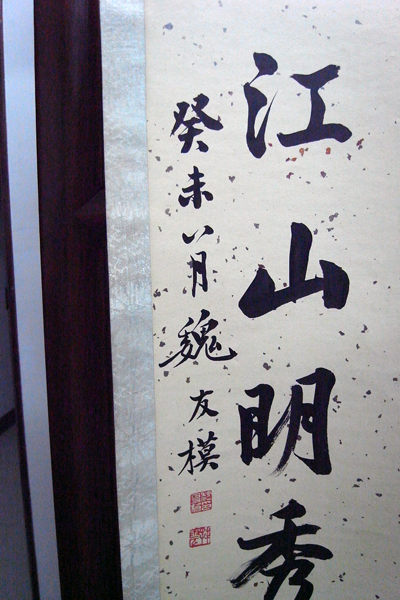 江山明秀
癸未八月魏友模